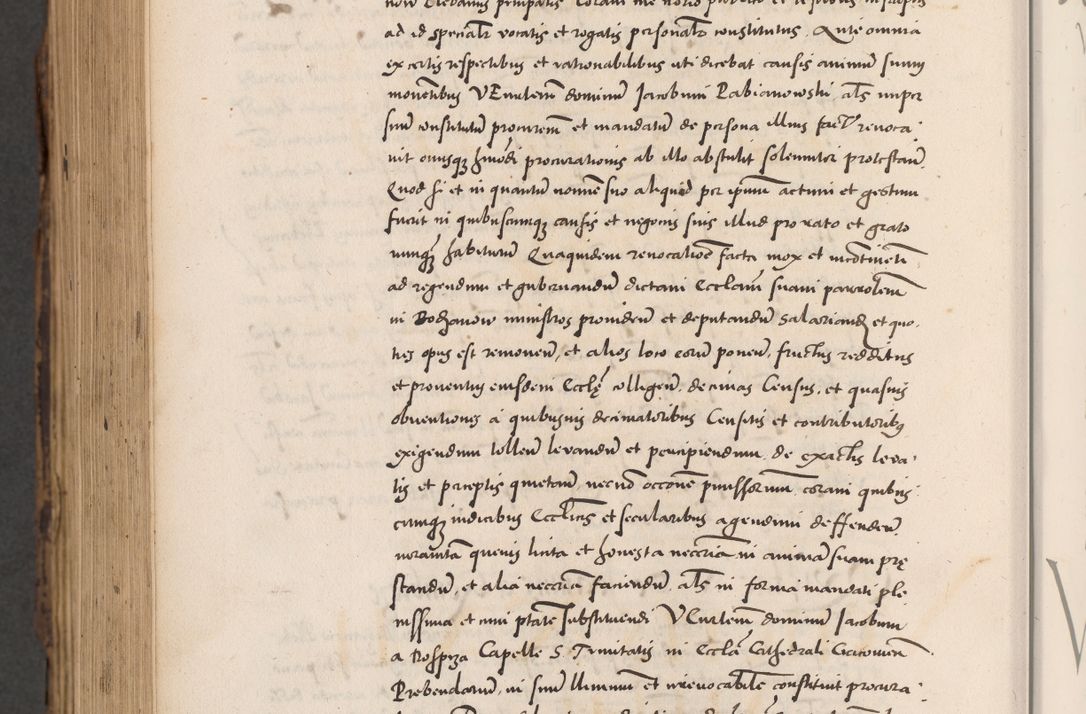 ad id specialr vocatis et rogatis personalr constitutus. Ante omnia
ex certis respectibus et rationabilibus uti dicebat causis animum suum
moventibus VEnlem dominum Jacobum Pabianowski als nuper
suum constitutum procurem et mandatum de persona illius fact revoca
vit omnisque hmodi procurationis ab illo abstulit solemniter protestan
Quod si et in quantum nomine suo aliquid per ipsum actum et gestum
fuerit in quibuscumque causis et negociis suis illud pro rato et grato
nunque habiturum Quaquidem revocatione facta mox et incotineti
ad regendum et gubernandum dictam Ecclam suam parrolem
in Bodzanow ministros providen et deputandum salariand et quo
ties opus est removen, et alios loco eorum ponen, fructus redditus
et proventus eiusdem Eccle colligen, decimas Census, et quasvis
obventiones a quibusvis decimatoribus Censitis et contributoribus
exigendum tollen levandum et percipiendum, de exactis leva
tis et perceptis quietan, necno occone pmissorum, coram quibus
cumque iudicibus Eccticis et secularibus agendum deffenden
iuramta quevis licita et honesta necria in animam suam pre
standum, et alia necria faciendum, als in forma mandati ple
nissima et cum ptate substituendi VEnrlem dominum Jacobum
a Capelle S. Trinitatis in Eccla Cathedrali Cracovien
Prebendarium, in suum llimum et irrevocabile constituit procura